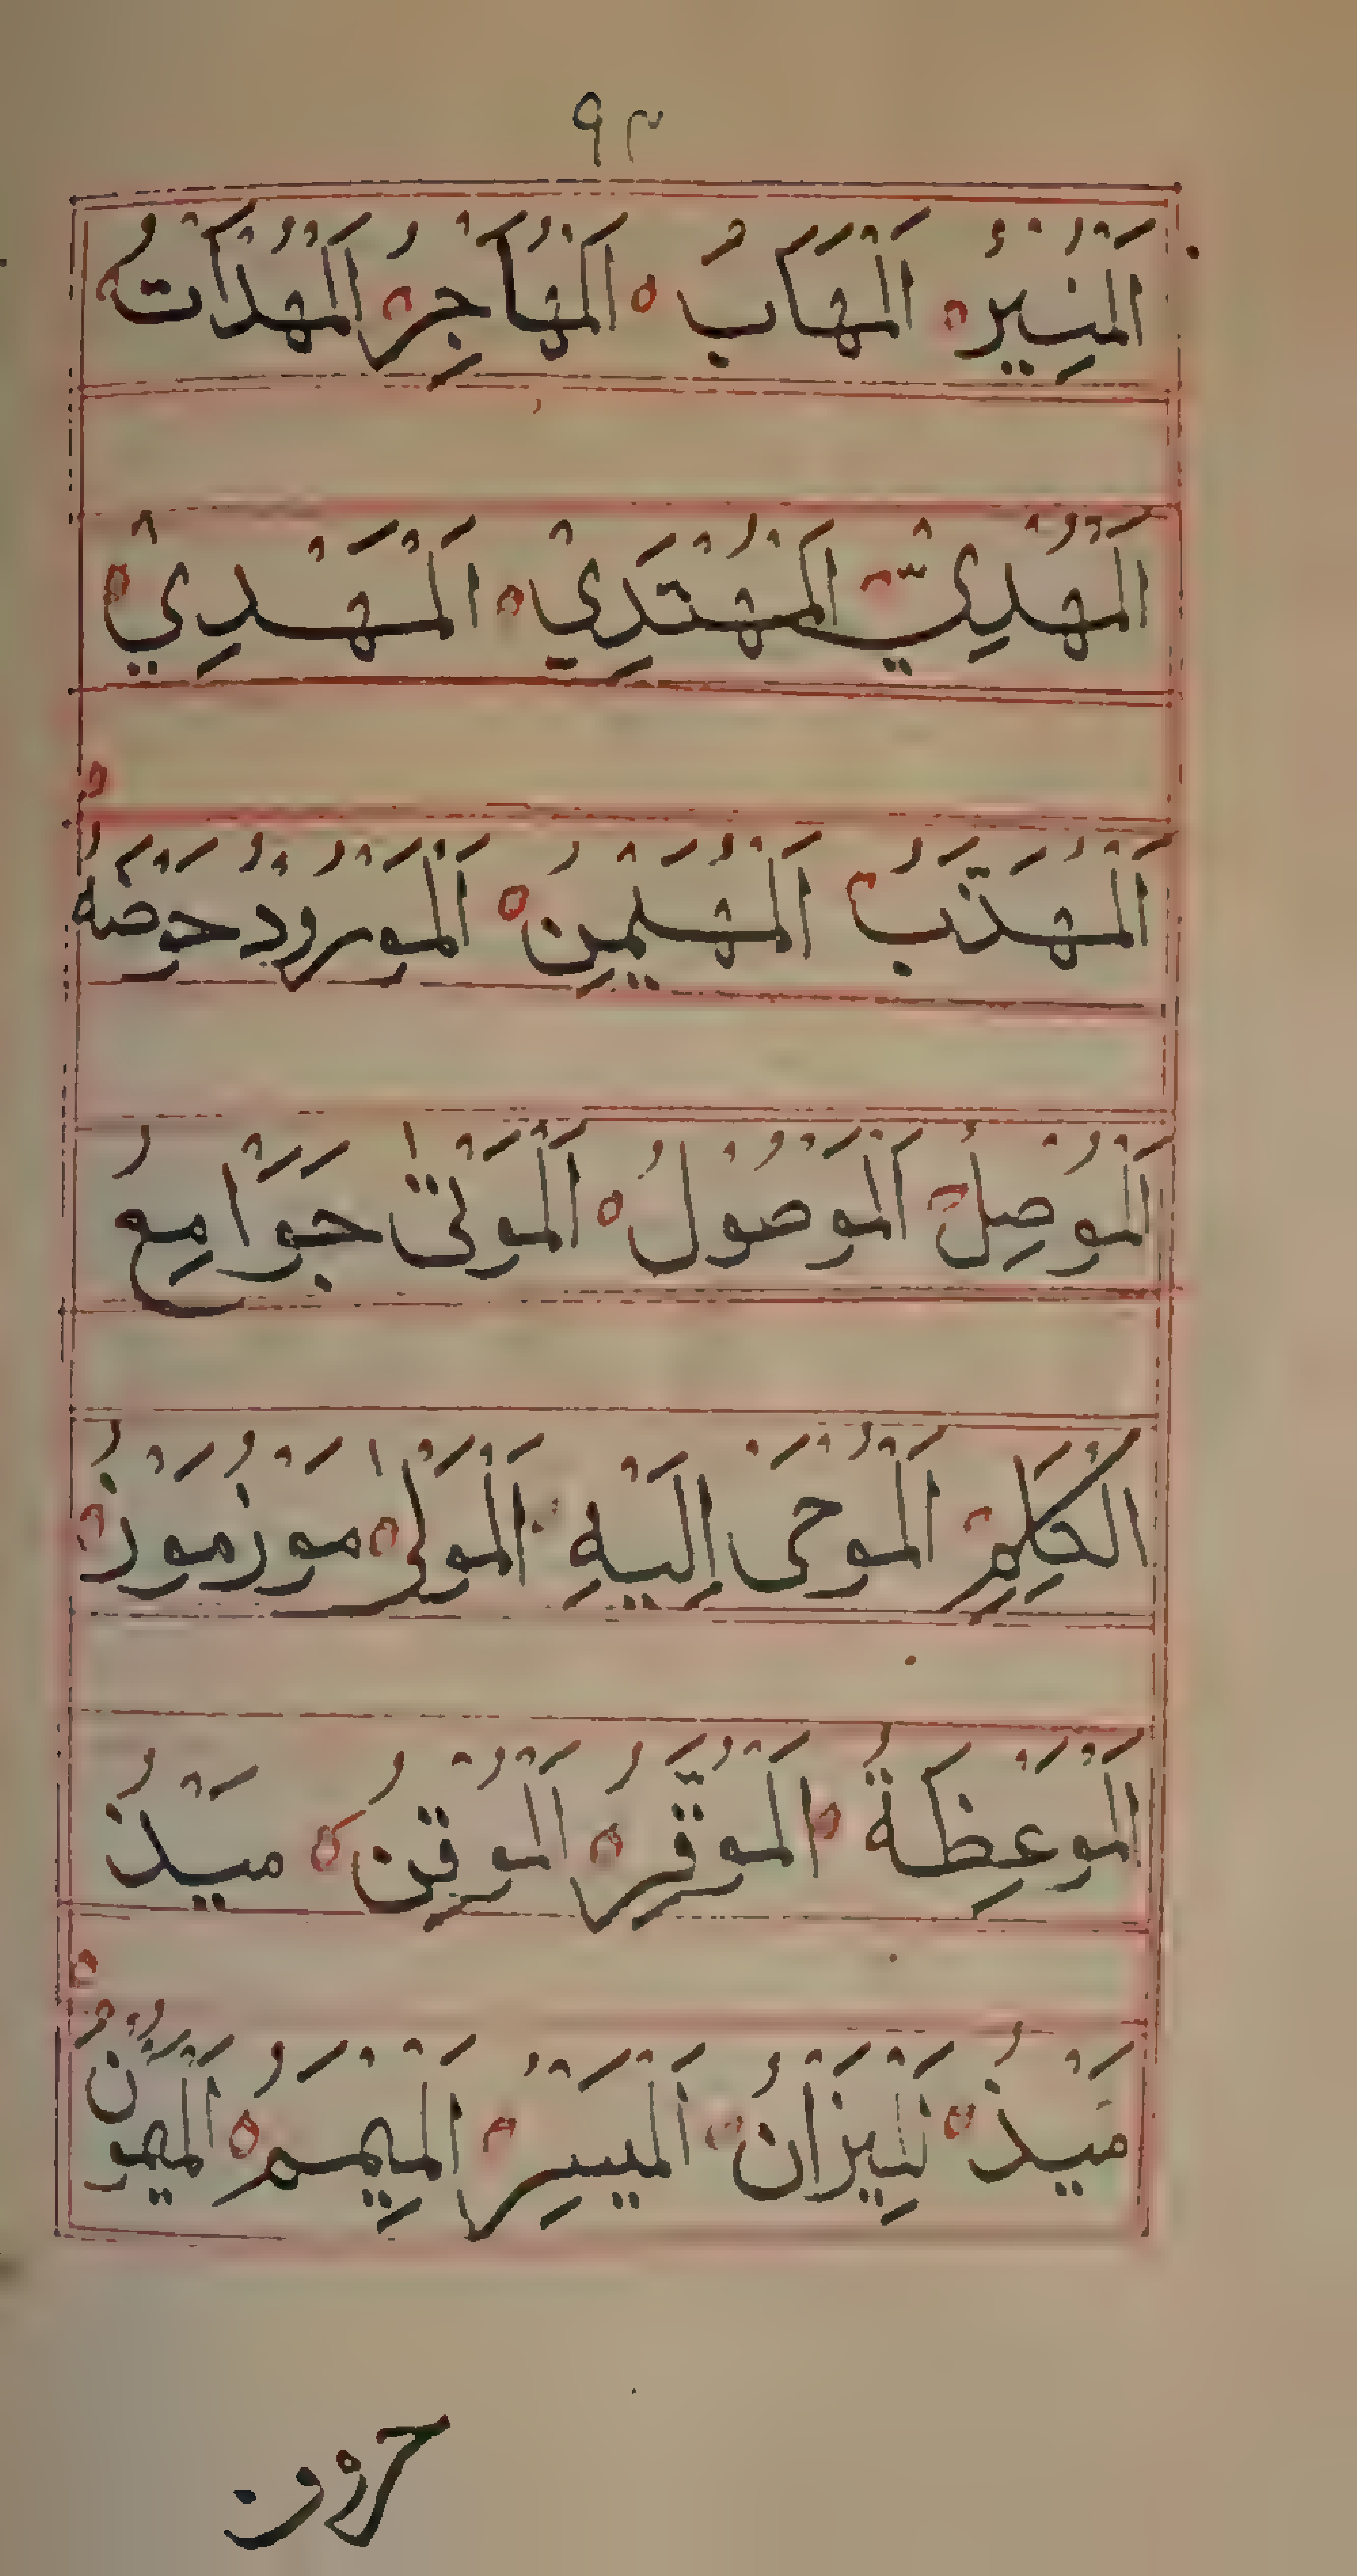 ٩٣
اَلْمُنِيْرُ اَلْمَهَابُ اَلْمُهَاجِرُ اَلْمُهْدَاتُ
اَلْمَهْدِيُّ اَلْمُهْتَدِيْ اَلْمَهْدِيْ
اَلْمُهَذَّبُ اَلْمُهَيْمِنُ اَلْمَوْرُوْدُ حَوْضُهُ
اَلْمُوْصِلُ اَلْمَوْصُوْلُ اَلْمُوْتٰى جَوَامِعُ
الْكَلِمِ اَلْمُوْحَى اِلَيْهِ اَلْمَوْلٰى مَوْزُمَوْزُ
اَلْمَوْعِظَةُ اَلْمُوَقِّرُ اَلْمُوْقِنُ مَيْدُ
مَيْذُ اَلْمِيْزَانُ اَلْمُيَسِّرُ اَلْمِيْمَمُ اَلْمَيْمُوْنُ
حرون